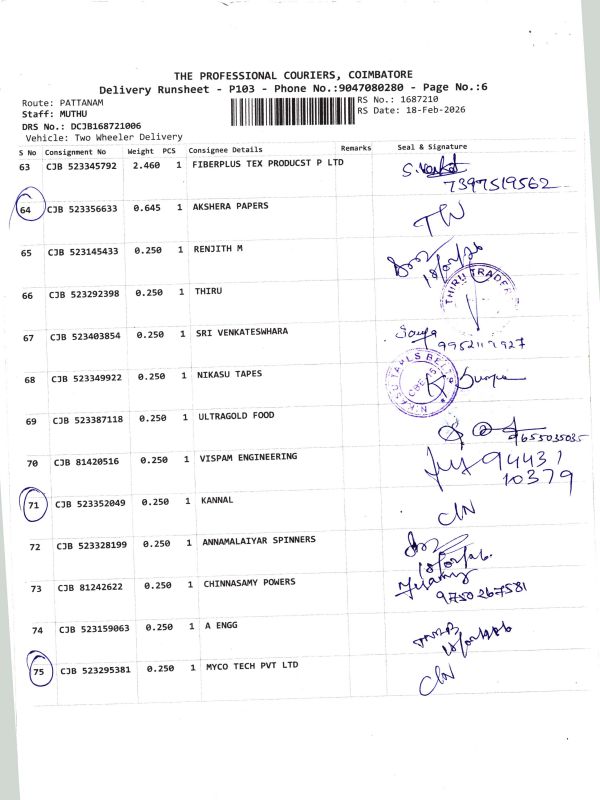 THE PROFESSIONAL COURIERS, COIMBATORE
Delivery Runsheet - P103 - Phone No.:9047080280 - Page No.:6
Route: PATTANAM
RS No.: 1687210
Staff: MUTHU
RS Date: 18-Feb-2026
DRS No.: DCJB168721006
Vehicle: Two Wheeler Delivery
S No Consignment No Weight PCS Consignee Details Remarks Seal & Signature
63 CJB 523345792 2.460 1 FIBERPLUS TEX PRODUCST P LTD S. Venkat
7397519562
64 CJB 523356633 0.645 1 AKSHERA PAPERS
65 CJB 523145433 0.250 1 RENJITH M
66 CJB 523292398 0.250 1 THIRU THIRU TRADER
67 CJB 523403854 0.250 1 SRI VENKATESWHARA
68 CJB 523349922 0.250 1 NIKASU TAPES NIKASU TAPLS BEL
69 CJB 523387118 0.250 1 ULTRAGOLD FOOD
9655035035
70 CJB 81420516 0.250 1 VISPAM ENGINEERING 94431
10379
71 CJB 523352049 0.250 1 KANNAL
72 CJB 523328199 0.250 1 ANNAMALAIYAR SPINNERS
73 CJB 81242622 0.250 1 CHINNASAMY POWERS
9750267581
74 CJB 523159063 0.250 1 A ENGG
75 CJB 523295381 0.250 1 MYCO TECH PVT LTD